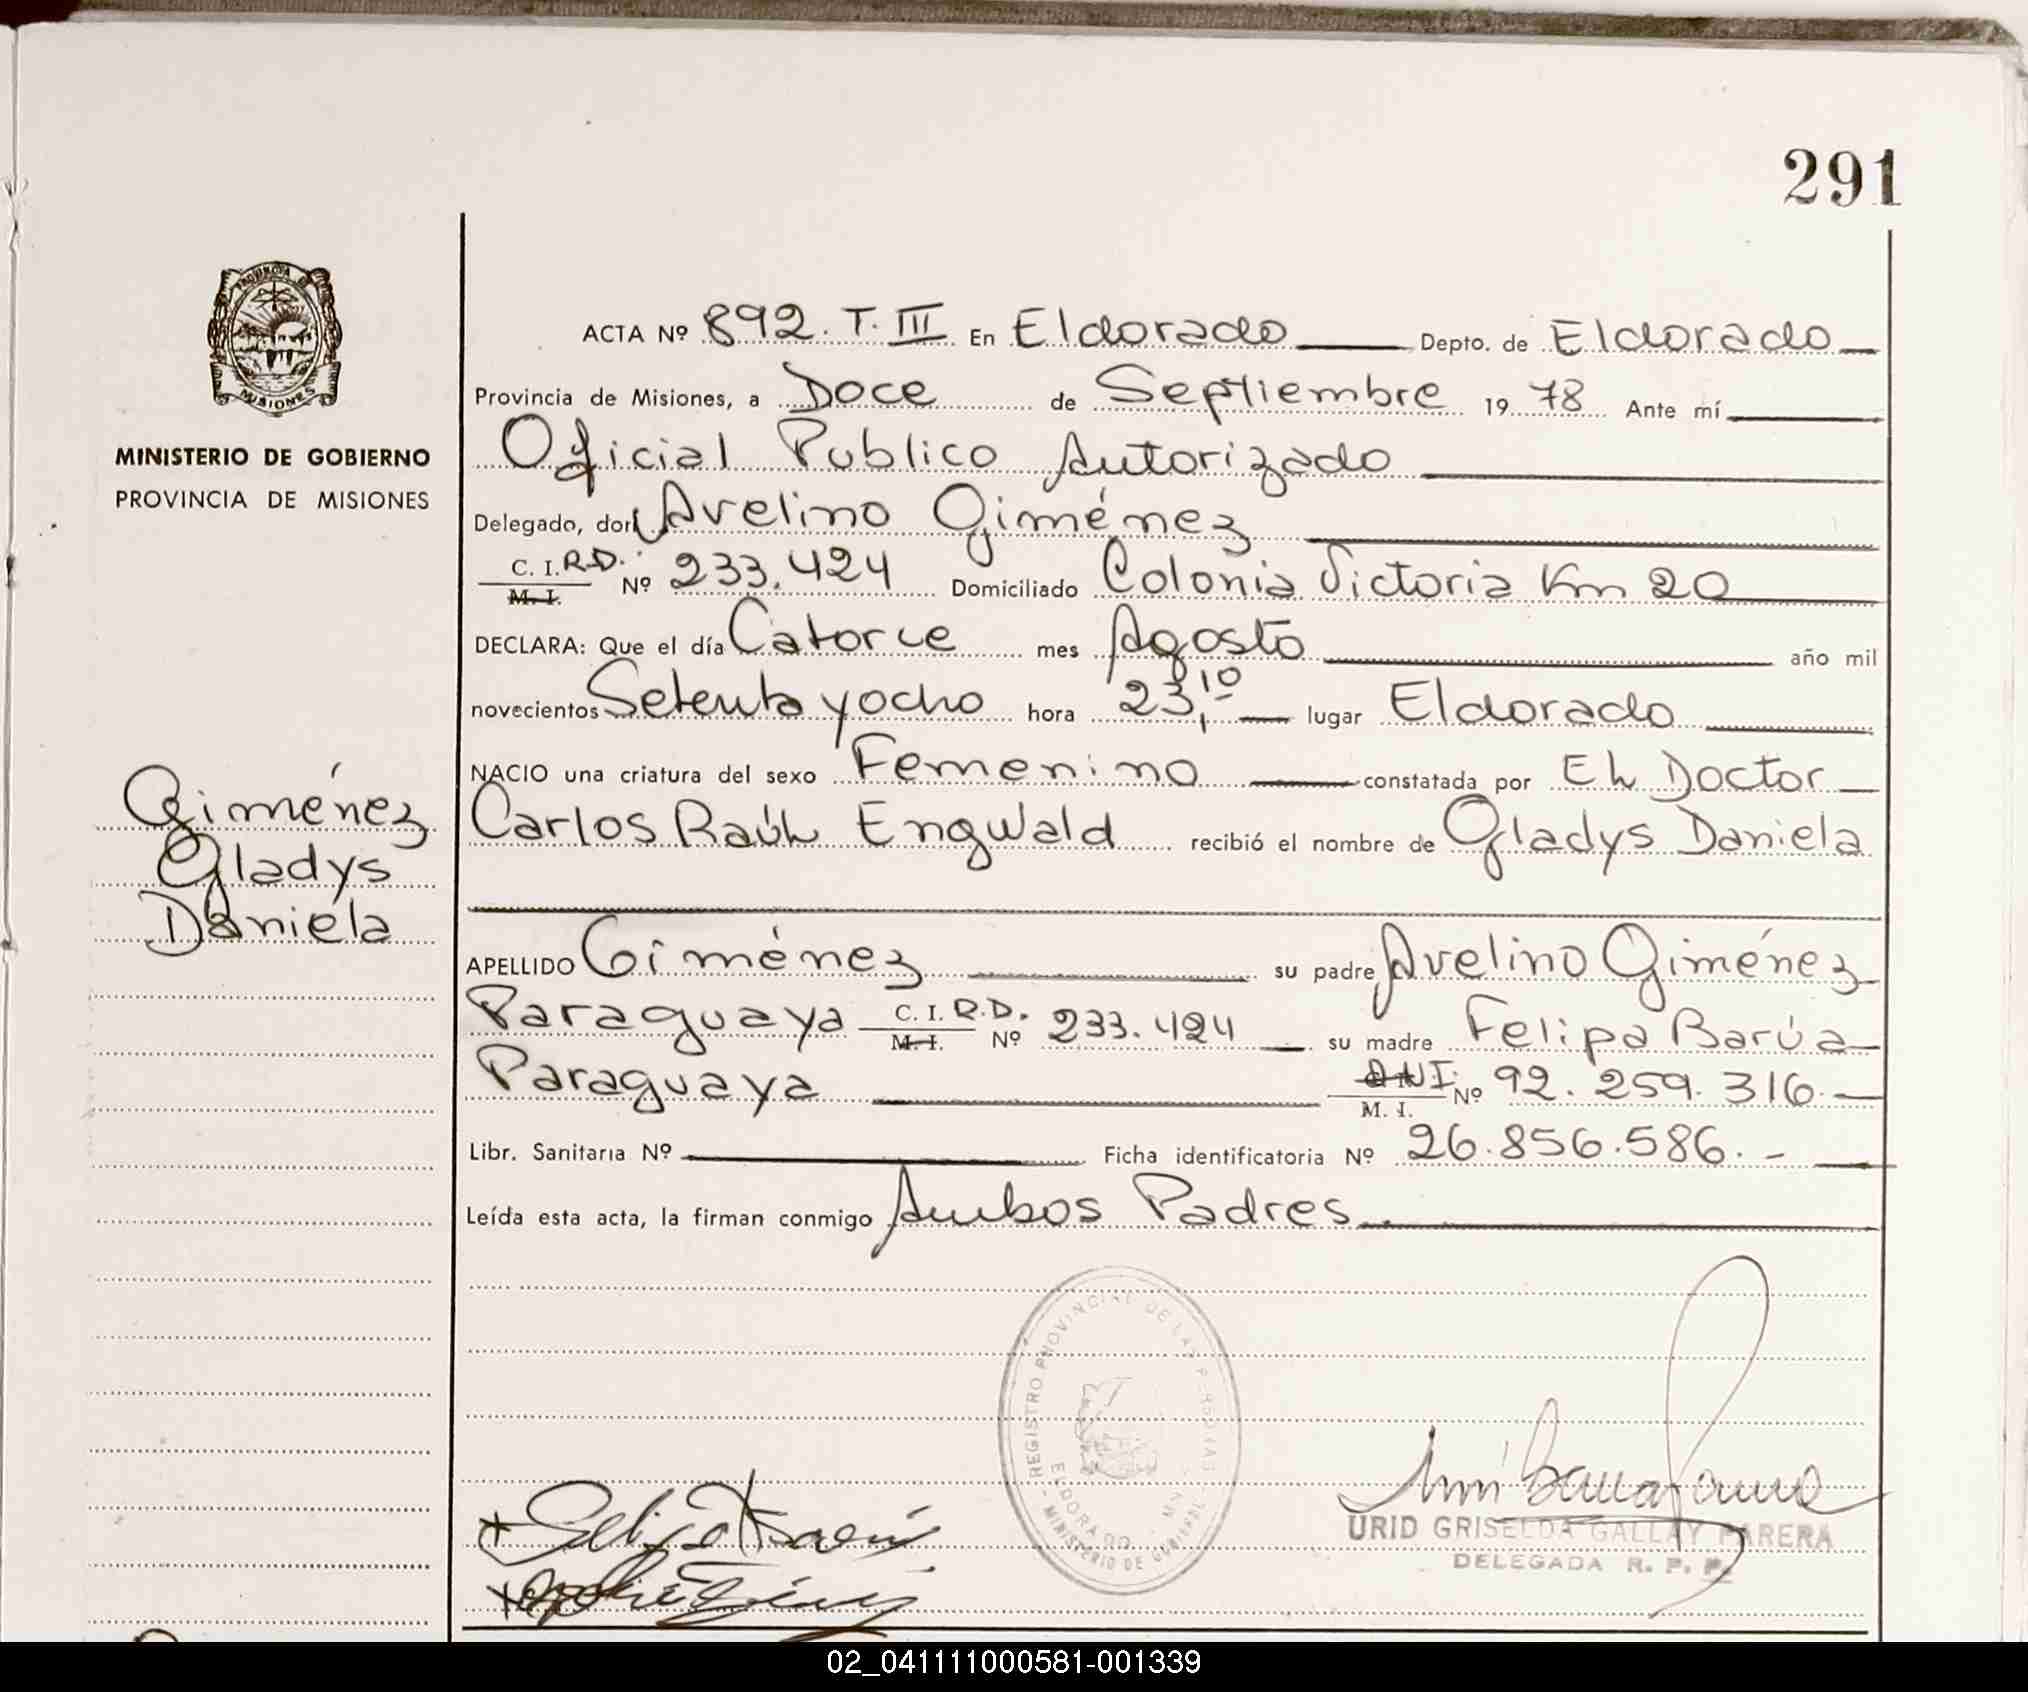 291
PROVINCIA DE
MISIONES
MINISTERIO DE GOBIERNO
PROVINCIA DE MISIONES
Giménez
Gladys
Daniela
ACTA Nº 892. T. III En Eldorado Depto. de Eldorado
Provincia de Misiones, a Doce de Septiembre 19 78 Ante mí
Oficial Publico Autorizado
Delegado, don Avelino Giménez
C. I. R.D. M. I. Nº 233.424 Domiciliado Colonia Victoria Km 20
DECLARA: Que el día Catorce mes Agosto año mil
novecientos Setenta y ocho hora 23,10 lugar Eldorado
NACIO una criatura del sexo Femenino constatada por El Doctor
Carlos Raúl Engwald recibió el nombre de Gladys Daniela
APELLIDO Giménez su padre Avelino Giménez
Paraguaya C. I. R.D. M. I. Nº 233.424 su madre Felipa Barúa
Paraguaya DNI. M. I. Nº 92.259.316.
Libr. Sanitaria Nº Ficha identificatoria Nº 26.856.586.-
Leída esta acta, la firman conmigo Ambos Padres.
REGISTRO PROVINCIAL DE LAS PERSONAS
ELDORADO - MNES
MINISTERIO DE GOBIERNO
URID GRISELDA GALLAY PARERA
DELEGADA R. P. P.
02_041111000581-001339